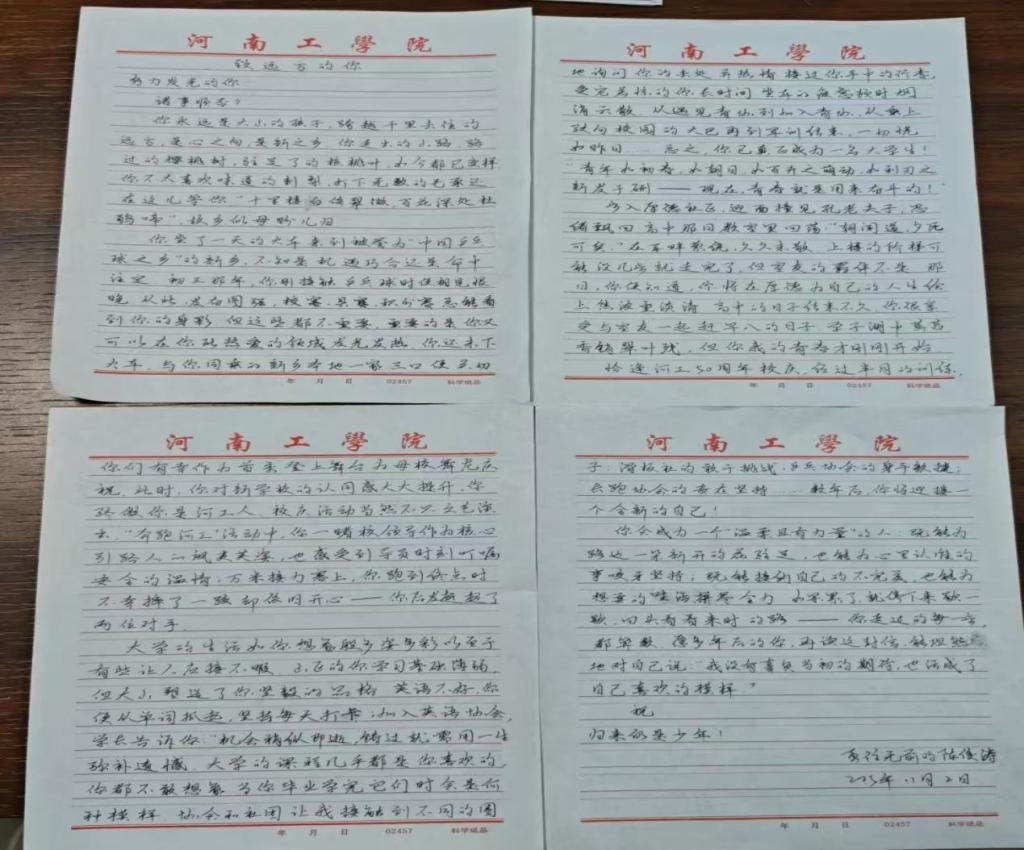 河南工學院
致远方的你
努力发光的你
诸事顺否？
你永远是大山的孩子，跨越千里去往的
远方，是心之向，是新之乡，你走出的小路，路
过的樱桃树，驻足了的核桃叶，如今都已变样
你不太喜欢味道的刺梨，打下无数的毛栗还
在这儿等你“十里楼台倚翠微，百花深处杜
鹃啼”，故乡似母盼儿归
你坐了一天的火车来到被誉为“中国乒乓
球之乡”的新乡，不知是机遇巧合还是命中
注定 初三那年，你刚接触乒乓球时便相见恨
晚 从此，发奋图强，校赛、县赛、积分赛总能看
到你的身影 但这些都不重要，重要的是你又
可以在你酷热爱的领域发光发热 你还未下
火车，与你同乘的新乡本地一家三口便亲切
年 月 日 02457 科学纸品
河南工學院
地询问你的去处 并热情接过你手中的行李，
受宠若惊的你长时间坐车的疲惫顿时烟
消云散 从遇见青协到加入青协，从乘上
驶向校园的大巴再到军训结束，一切恍
如昨日…… 总之，你已真正成为一名大学生！
“青年如初春，如朝日，如百卉之萌动，如利刃之
新发于硎——现在，青春就是用来奋斗的！”
步入厚德社区，迎面撞见孔老夫子，思
绪飘回高中那间教室里回荡：“朝闻道，夕死
可矣”在耳畔萦绕，久久未散 上楼的阶梯可
能没几步就走完了，但室友的羁绊不是 那
日，你便知道，你将在厚德为自己的人生绘
上些浓重淡清 高中的日子结束不久，你很享
受与室友一起赶早八的日子 圣子湖中菡萏
香销翠叶残，但你我的青春才刚刚开始
恰逢河工50周年校庆，经过半月的训练，
年 月 日 02457 科学纸品
河南工學院
你们有幸作为首秀登上舞台为母校舞龙庆
祝 此时，你对新学校的认同感大大提升，你
骄傲你是河工人 校庆活动当然不只文艺演
出，“奔跑河工”活动中，你一睹校领导作为核心
引路人的飒爽英姿，也感受到导员时刻叮嘱
安全的温情；万米接力赛上，你跑到终点时
不幸摔了一跤却依旧开心——你后发超越了
两位对手
大学的生活如你想象般多姿多彩以至于
有些让人应接不暇 山区的你学习基础薄弱，
但大山塑造了你坚毅的品格 英语不好，你
便从单词抓起，坚持每天打卡；加入英语协会，
学长告诉你：“机会稍纵即逝，错过就需用一生
弥补遗憾 大学的课程几乎都是你喜欢的，
你都不敢想象 当你毕业学完它们时会是何
种模样 协会和社团让我接触到不同的圈
年 月 日 02457 科学纸品
河南工學院
子：滑板社的敢于挑战；乒乓协会的身手敏捷；
长跑协会的贵在坚持……数年后，你将迎接一
个全新的自己！
你会成为一个“温柔且有力量”的人：既能为
路边一朵新开的花驻足，也能为心里认准的
事咬牙坚持；既能接纳自己的不完美，也能为
想要的生活拼尽全力 如果累了，就停下来歇一
歇，回头看看来时的路——你走过的每一步，
都算数 像多年后的你，再读这封信，能坦然
地对自己说：“我没有辜负当初的期待，也活成了
自己喜欢的模样。”
祝
归来仍是少年！
勇往无前的陈俊涛
2025年11月2日
年 月 日 02457 科学纸品